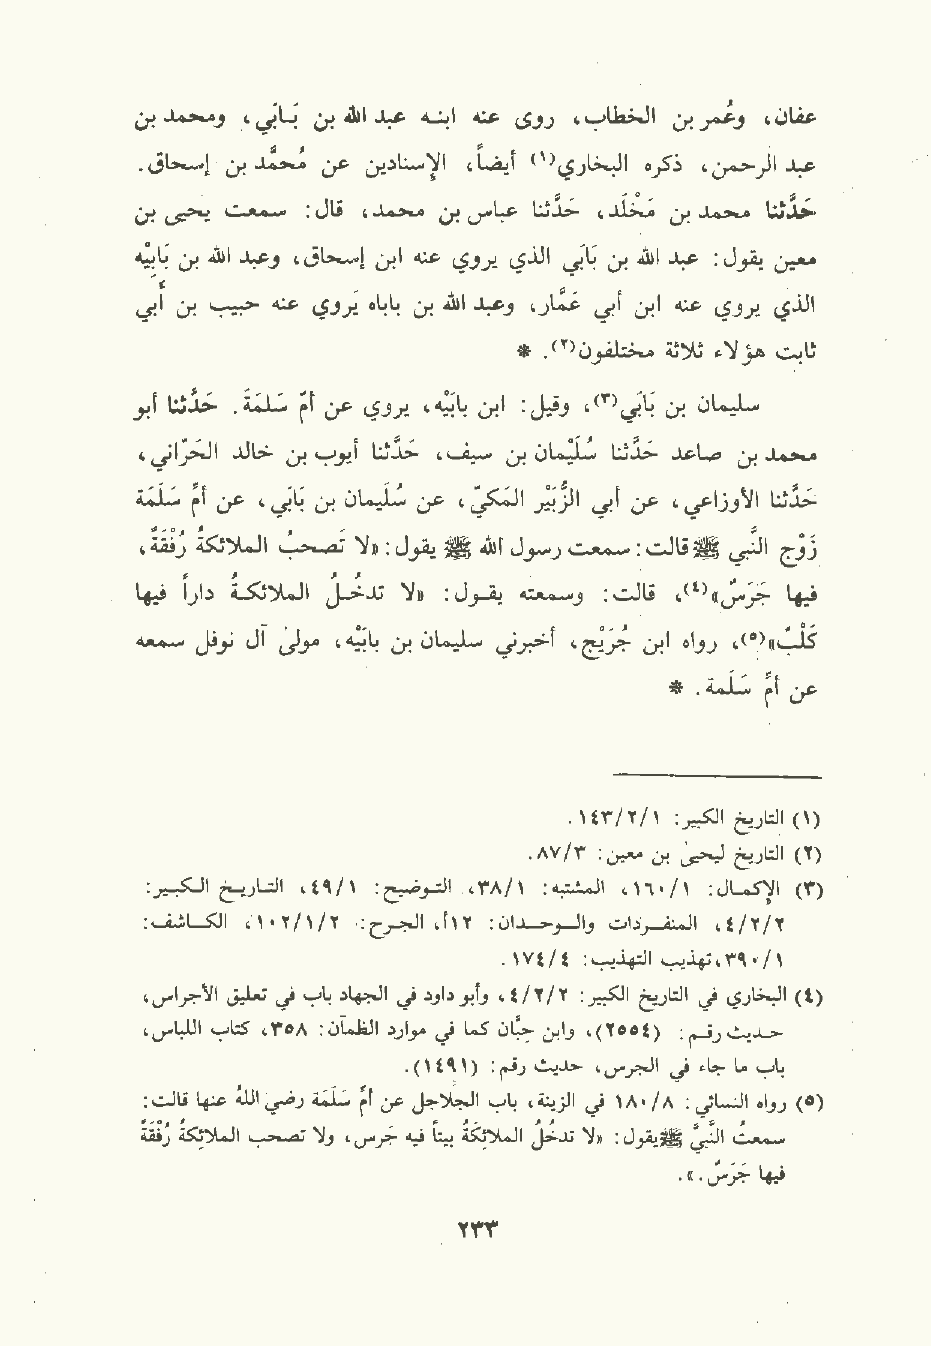 عفان، وعُمر بن الخطاب، روى عنه ابنه عبد الله بن بَابَي، ومحمد بن
عبد الرحمن، ذكره البخاري(١) أيضاً، الإسنادين عن مُحمَّد بن إسحاق.
حَدَّثنا محمد بن مَخْلَد، حَدَّثنا عباس بن محمد، قال: سمعت يحيى بن
معين يقول: عبد الله بن بَابَي الذي يروي عنه ابن إسحاق، وعبد الله بن بَابَيْه
الذي يروي عنه ابن أبي عَمَّار، وعبد الله بن باباه يروي عنه حبيب بن أبي
ثابت هؤلاء ثلاثة مختلفون(٢). *
سليمان بن بَابَي(٣)، وقيل: ابن بابَيْه، يروي عن أم سَلمَة. حَدَّثنا أبو
محمد بن صاعد حَدَّثنا سُلَيْمان بن سيف، حَدَّثنا أيوب بن خالد الحَرَّاني،
حَدَّثنا الأوزاعي، عن أبي الزُّبَيْر المَكيّ، عن سُليمان بن بَابَي، عن أم سَلَمَة
زَوْج النَّبي ﷺ قالت: سمعت رسول الله ﷺ يقول: «لا تَصحبُ الملائكةُ رُفْقَةً،
فيها جَرَسٌ»(٤)، قالت: وسمعته يقول: «لا تدخُلُ الملائكةُ داراً فيها
كَلْبٌ»(٥)، رواه ابن جُرَيْج، أخبرني سليمان بن بابَيْه، مولى آل نوفل سمعه
عن أمِّ سَلَمة. *
(١) التاريخ الكبير: ١٤٣/٢/١.
(٢) التاريخ ليحيى بن معين: ٨٧/٣.
(٣) الإكمال: ١٦٠/١، المشتبه: ٣٨/١، التوضيح: ٤٩/١، التاريخ الكبير:
٤/٢/٢، المنفردات والوحدان: ١٢أ، الجرح: ١٠٢/١/٢، الكاشف:
٣٩٠/١، تهذيب التهذيب: ١٧٤/٤.
(٤) البخاري في التاريخ الكبير: ٤/٢/٢، وأبو داود في الجهاد باب في تعليق الأجراس،
حديث رقم: (٢٥٥٤)، وابن حِبَّان كما في موارد الظمآن: ٣٥٨، كتاب اللباس،
باب ما جاء في الجرس، حديث رقم: (١٤٩١).
(٥) رواه النسائي: ١٨٠/٨ في الزينة، باب الجلاجل عن أمِّ سَلَمَة رضي اللهُ عنها قالت:
سمعتُ النَّبيَّ ﷺ يقول: «لا تدخُلُ الملائِكَةُ بيتاً فيه جَرس، ولا تصحب الملائِكةُ رُفقَةً
فيها جَرَسٌ.».
٢٣٣